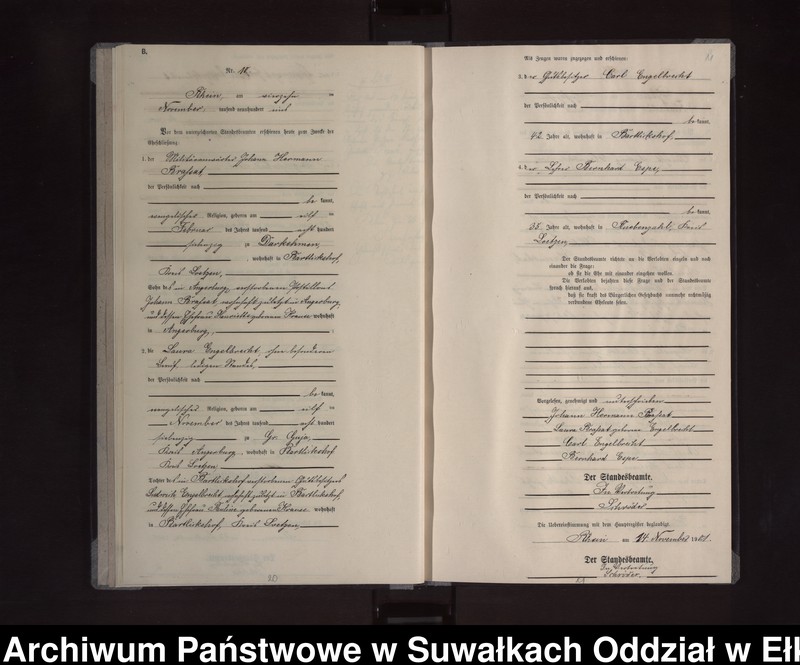 B.
Nr. 11.
Rhein, am vierzehn ten
November tausend neunhundert und
Vor dem unterzeichneten Standesbeamten erschienen heute zum Zwecke der
Eheschließung:
1. der Militäranwärter Johann Hermann
der Persönlichkeit nach
be kannt,
evangelischer Religion, geboren am elf ten
Februar des Jahres tausend acht hundert
siebenzig zu Darkehmen,
, wohnhaft in Bartlickshof,
Kreis Loetzen,
Sohn des in Angerburg, verstorbenen
Johann, wohnhaft zuletzt in Angerburg,
und dessen Ehefrau Henriette geborenen wohnhaft
in Angerburg,
2. die Laura Engelbrecht, ohne besonderen
Beruf, ledigen Standes,
der Persönlichkeit nach
be kannt,
evangelischer Religion, geboren am elf ten
November des Jahres tausend acht hundert
siebenzig zu Gr. Guja,
Kreis Angerburg, wohnhaft in Bartlickshof
Kreis Loetzen
Tochter des in Bartlickshof verstorbenen Gutsbesitzers
Engelbrecht, zuletzt in Bartlickshof,
und dessen Ehefrau geborenen Krause wohnhaft
in Bartlickshof, Kreis Loetzen,
20
Als Zeugen waren zugezogen und erschienen:
3. der Gutsbesitzer Carl Engelbrecht
der Persönlichkeit nach
be kannt,
42 Jahre alt, wohnhaft in Bartlickshof,
4. der Lehrer Bernhard Espe,
der Persönlichkeit nach
be kannt,
35 Jahre alt, wohnhaft in Kreis
Loetzen
Der Standesbeamte richtete an die Verlobten einzeln und nach
einander die Frage:
ob sie die Ehe mit einander eingehen wollen.
Die Verlobten bejahten diese Frage und der Standesbeamte
sprach hierauf aus,
daß sie kraft des Bürgerlichen Gesetzbuchs nunmehr rechtmäßig
verbundene Eheleute seien.
Vorgelesen, genehmigt und unterschrieben
Johann Hermann
Laura geborene Engelbrecht
Carl Engelbrecht
Bernhard Espe
Der Standesbeamte.
In Vertretung
Schröder
Die Uebereinstimmung mit dem Hauptregister beglaubigt.
Rhein am 14. November 19
Der Standesbeamte.
In Vertretung
Schröder.
Archiwum Państwowe w Suwałkach Oddział w Ełk